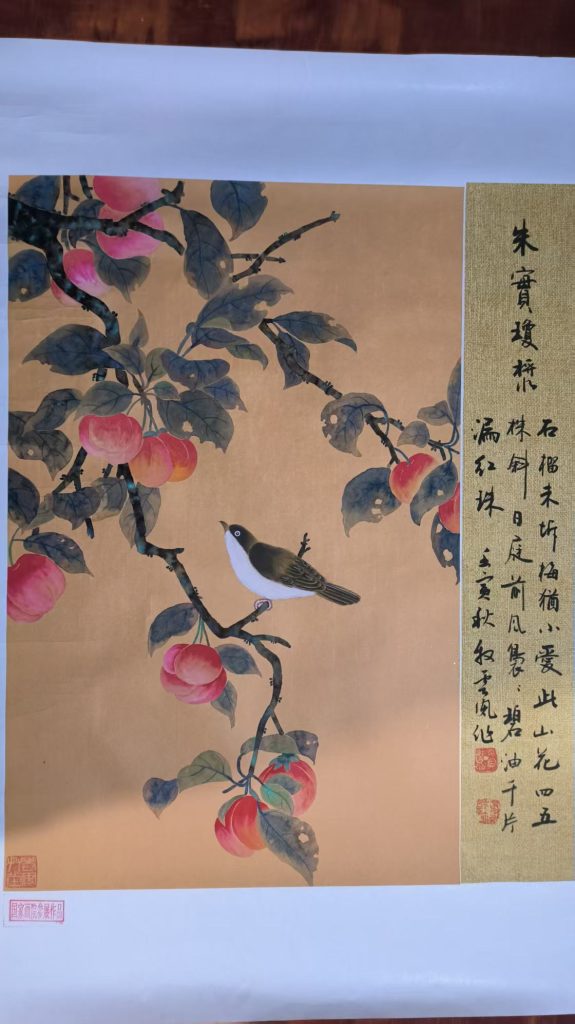 朱實瓊
石榴未坼梅猶小愛此山花四五
株斜日庭前风裊〻碧油千片
漏红珠 壬寅秋
国家画院参展作品